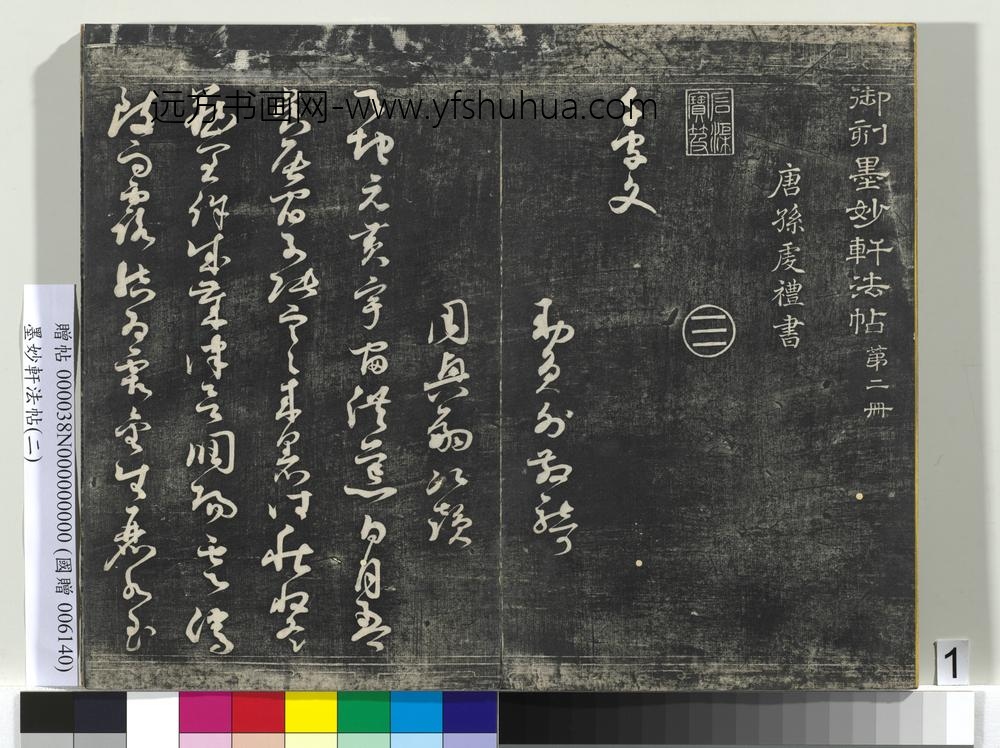 御刻墨妙軒法帖 第二冊
唐孫虔禮書
石渠寶笈
☰
千字文
勅員外散騎
周興嗣次韻
天地元黃宇宙洪荒日月盈
昃辰宿列張寒來暑往秋收冬
藏閏餘成歲律呂調陽雲騰
致雨露結為霜金生麗水玉
远方书画网-www.yfshuhua.com
贈帖 000038N000000000 (國贈 006140)
墨妙軒法帖(二)
1